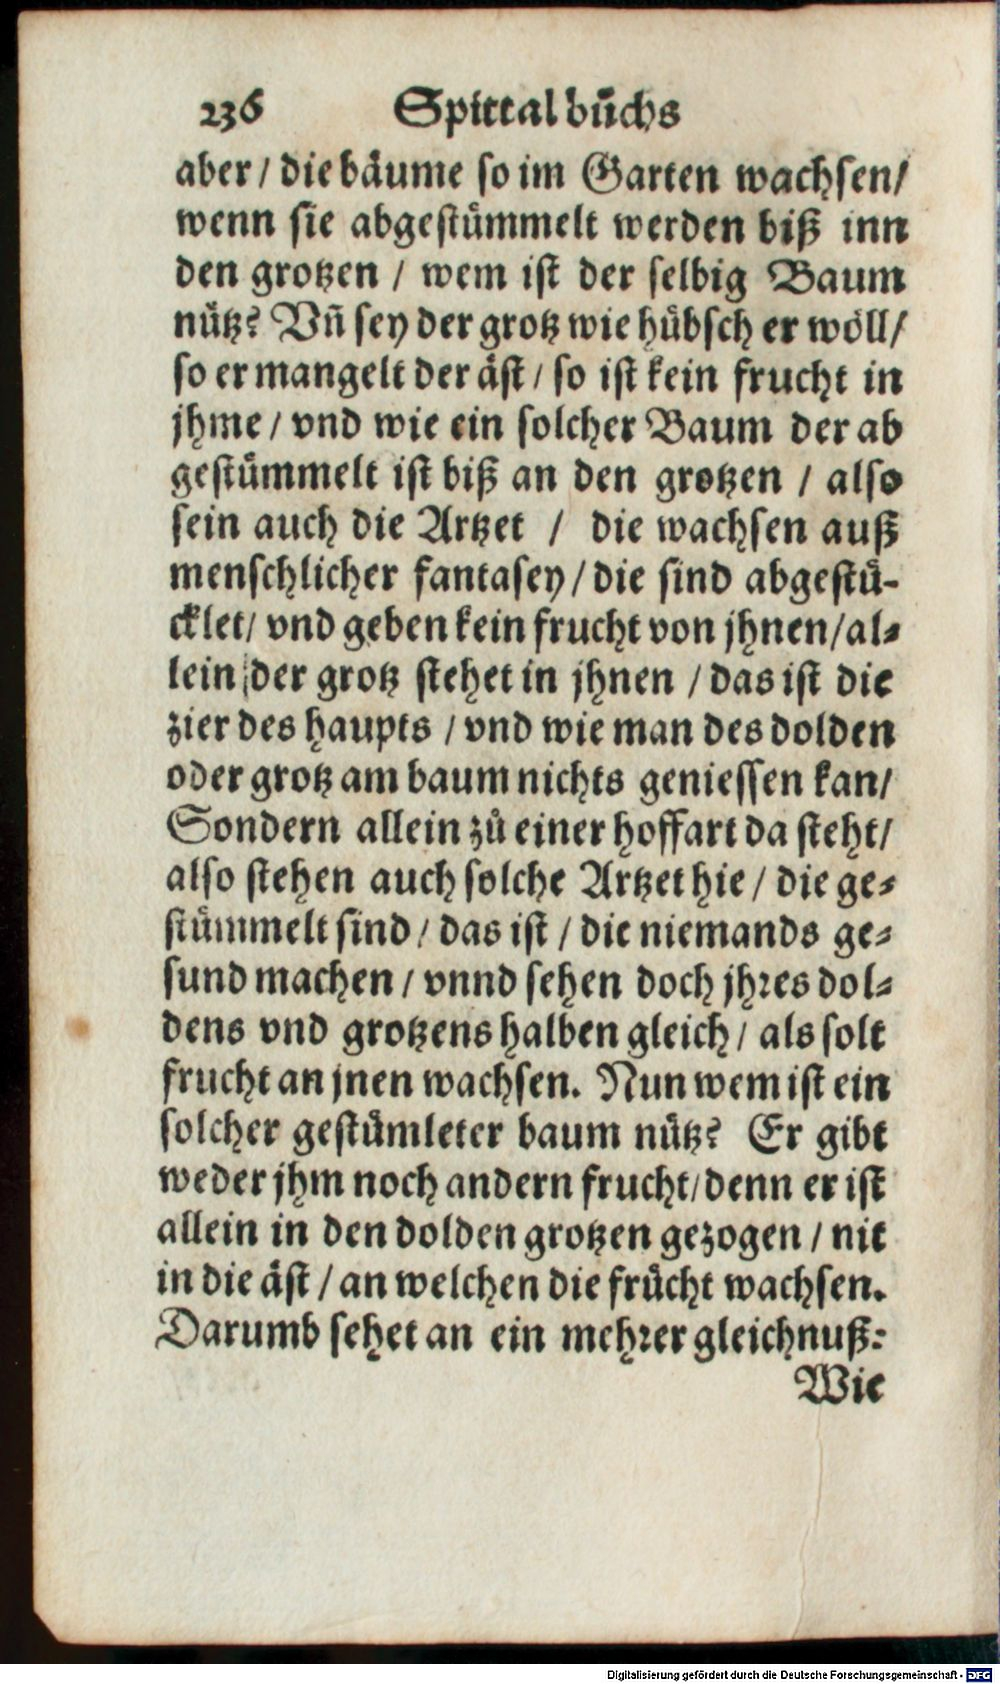 236 Spittal bůchs
aber / die bäume so im Garten wachsen /
wenn sie abgestümmelt werden biß inn
den grotzen / wem ist der selbig Baum
nütz? Vñ sey der grotz wie hübsch er wöll /
so er mangelt der äst / so ist kein frucht in
jhme / vnd wie ein solcher Baum der ab
gestümmelt ist biß an den grotzen / also
sein auch die Artzet / die wachsen auß
menschlicher fantasey / die sind abgestü-
cklet / vnd geben kein frucht von jhnen / al-
lein der grotz stehet in jhnen / das ist die
zier des haupts / vnd wie man des dolden
oder grotz am baum nichts geniessen kan /
Sondern allein zů einer hoffart da steht /
also stehen auch solche Artzet hie / die ge-
stümmelt sind / das ist / die niemands ge-
sund machen / vnnd sehen doch jhres dol-
dens vnd grotzens halben gleich / als solt
frucht an jnen wachsen. Nun wem ist ein
solcher gestümleter baum nütz? Er gibt
weder jhm noch andern frucht / denn er ist
allein in den dolden grotzen gezogen / nit
in die äst / an welchen die frücht wachsen.
Darumb sehet an ein mehrer gleichnuß:
Wie
Digitalisierung gefördert durch die Deutsche Forschungsgemeinschaft - DFG